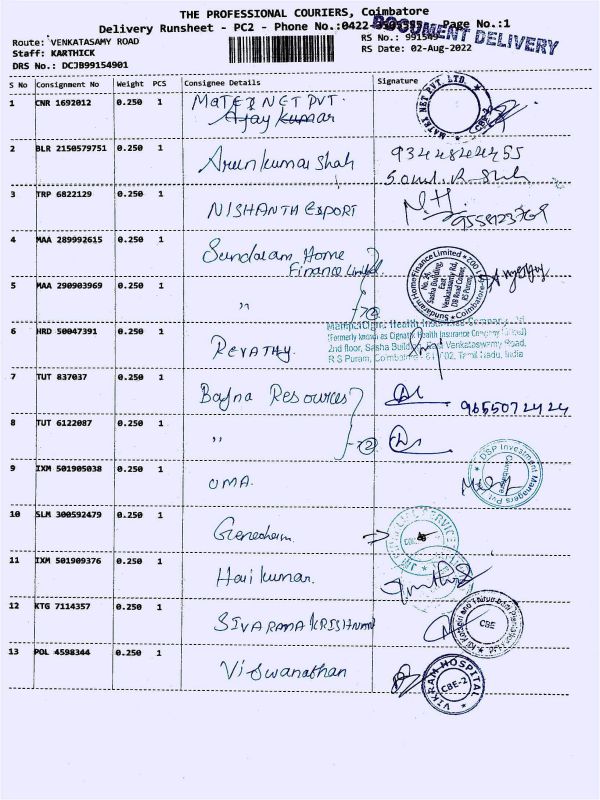 THE PROFESSIONAL COURIERS, Coimbatore
Delivery Runsheet - PC2 - Phone No.:0422 Page No.:1
DOCUMENT DELIVERY
Route: VENKATASAMY ROAD
RS No.: 991549
Staff: KARTHICK
RS Date: 02-Aug-2022
DRS No.: DCJB99154901
S No Consignment No Weight PCS Consignee Details Signature
1 CNR 1692012 0.250 1 MATEX NET PVT.
Ajay kumar
MATEX NET PVT. LTD.
2 BLR 2150579751 0.250 1 Arun kumar Shah 9344844455
3 TRP 6822129 0.250 1 NISHANTH EXPORT 9558123769
4 MAA 289992615 0.250 1 Sundaram Home
Finance Limited
Sundaram Home Finance Limited
No. 26,
Sasha Building,
East
Venkatasamy Rd,
RS Puram,
Coimbatore
5 MAA 290903969 0.250 1 "
2
6 HRD 50047391 0.250 1 REVATHY.
ManipalCigna Health Insurance Company Ltd
(Formerly known as CignaTTK Health Insurance Company Limited)
2nd floor, Sasha Building, East Venkataswamy Road,
R S Puram, Coimbatore - 641 002, Tamil Nadu, India
7 TUT 837037 0.250 1 Bafna Resources 9655072424
8 TUT 6122087 0.250 1 "
2
9 IXM 501905038 0.250 1 UMA.
DSP Investment Managers Pvt
Coimbatore
10 SLM 300592479 0.250 1 Ganesham
11 IXM 501909376 0.250 1 Hari kumar.
12 KTG 7114357 0.250 1 SIVARAMA KRISHNAN
CBE
13 POL 4598344 0.250 1 Viswanathan
VIKRAM HOSPITAL
CBE-2